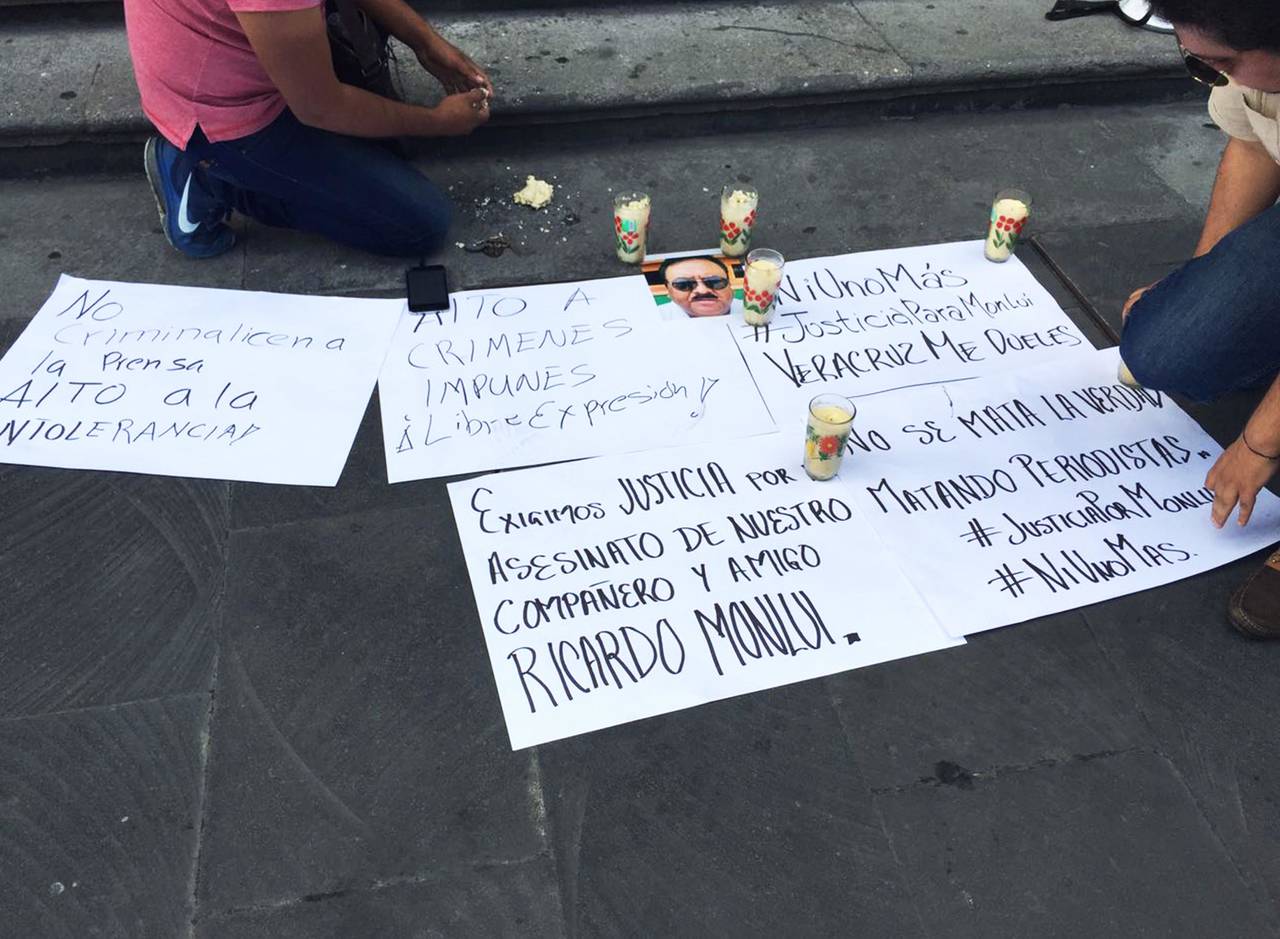 No
Criminalicen a
la Prensa
AlTO a la
NTOLERANCIA!
AlTO A
CRIMENES
IMPUNES
¡LibreExpresión!
NiUnoMás
#JusticiaParaMonlui
VERACRUZ ME DUELES
EXIGIMOS JUSTICIA POR
ASESINATO DE NUESTRO
COMPAÑERO Y AMIGO
RICARDO MONLUI.
NO SE MATA LA VERDAD
MATANDO PERIODISTAS..
#JUSTICIAPORMONLUI
#NiUNOMAS.